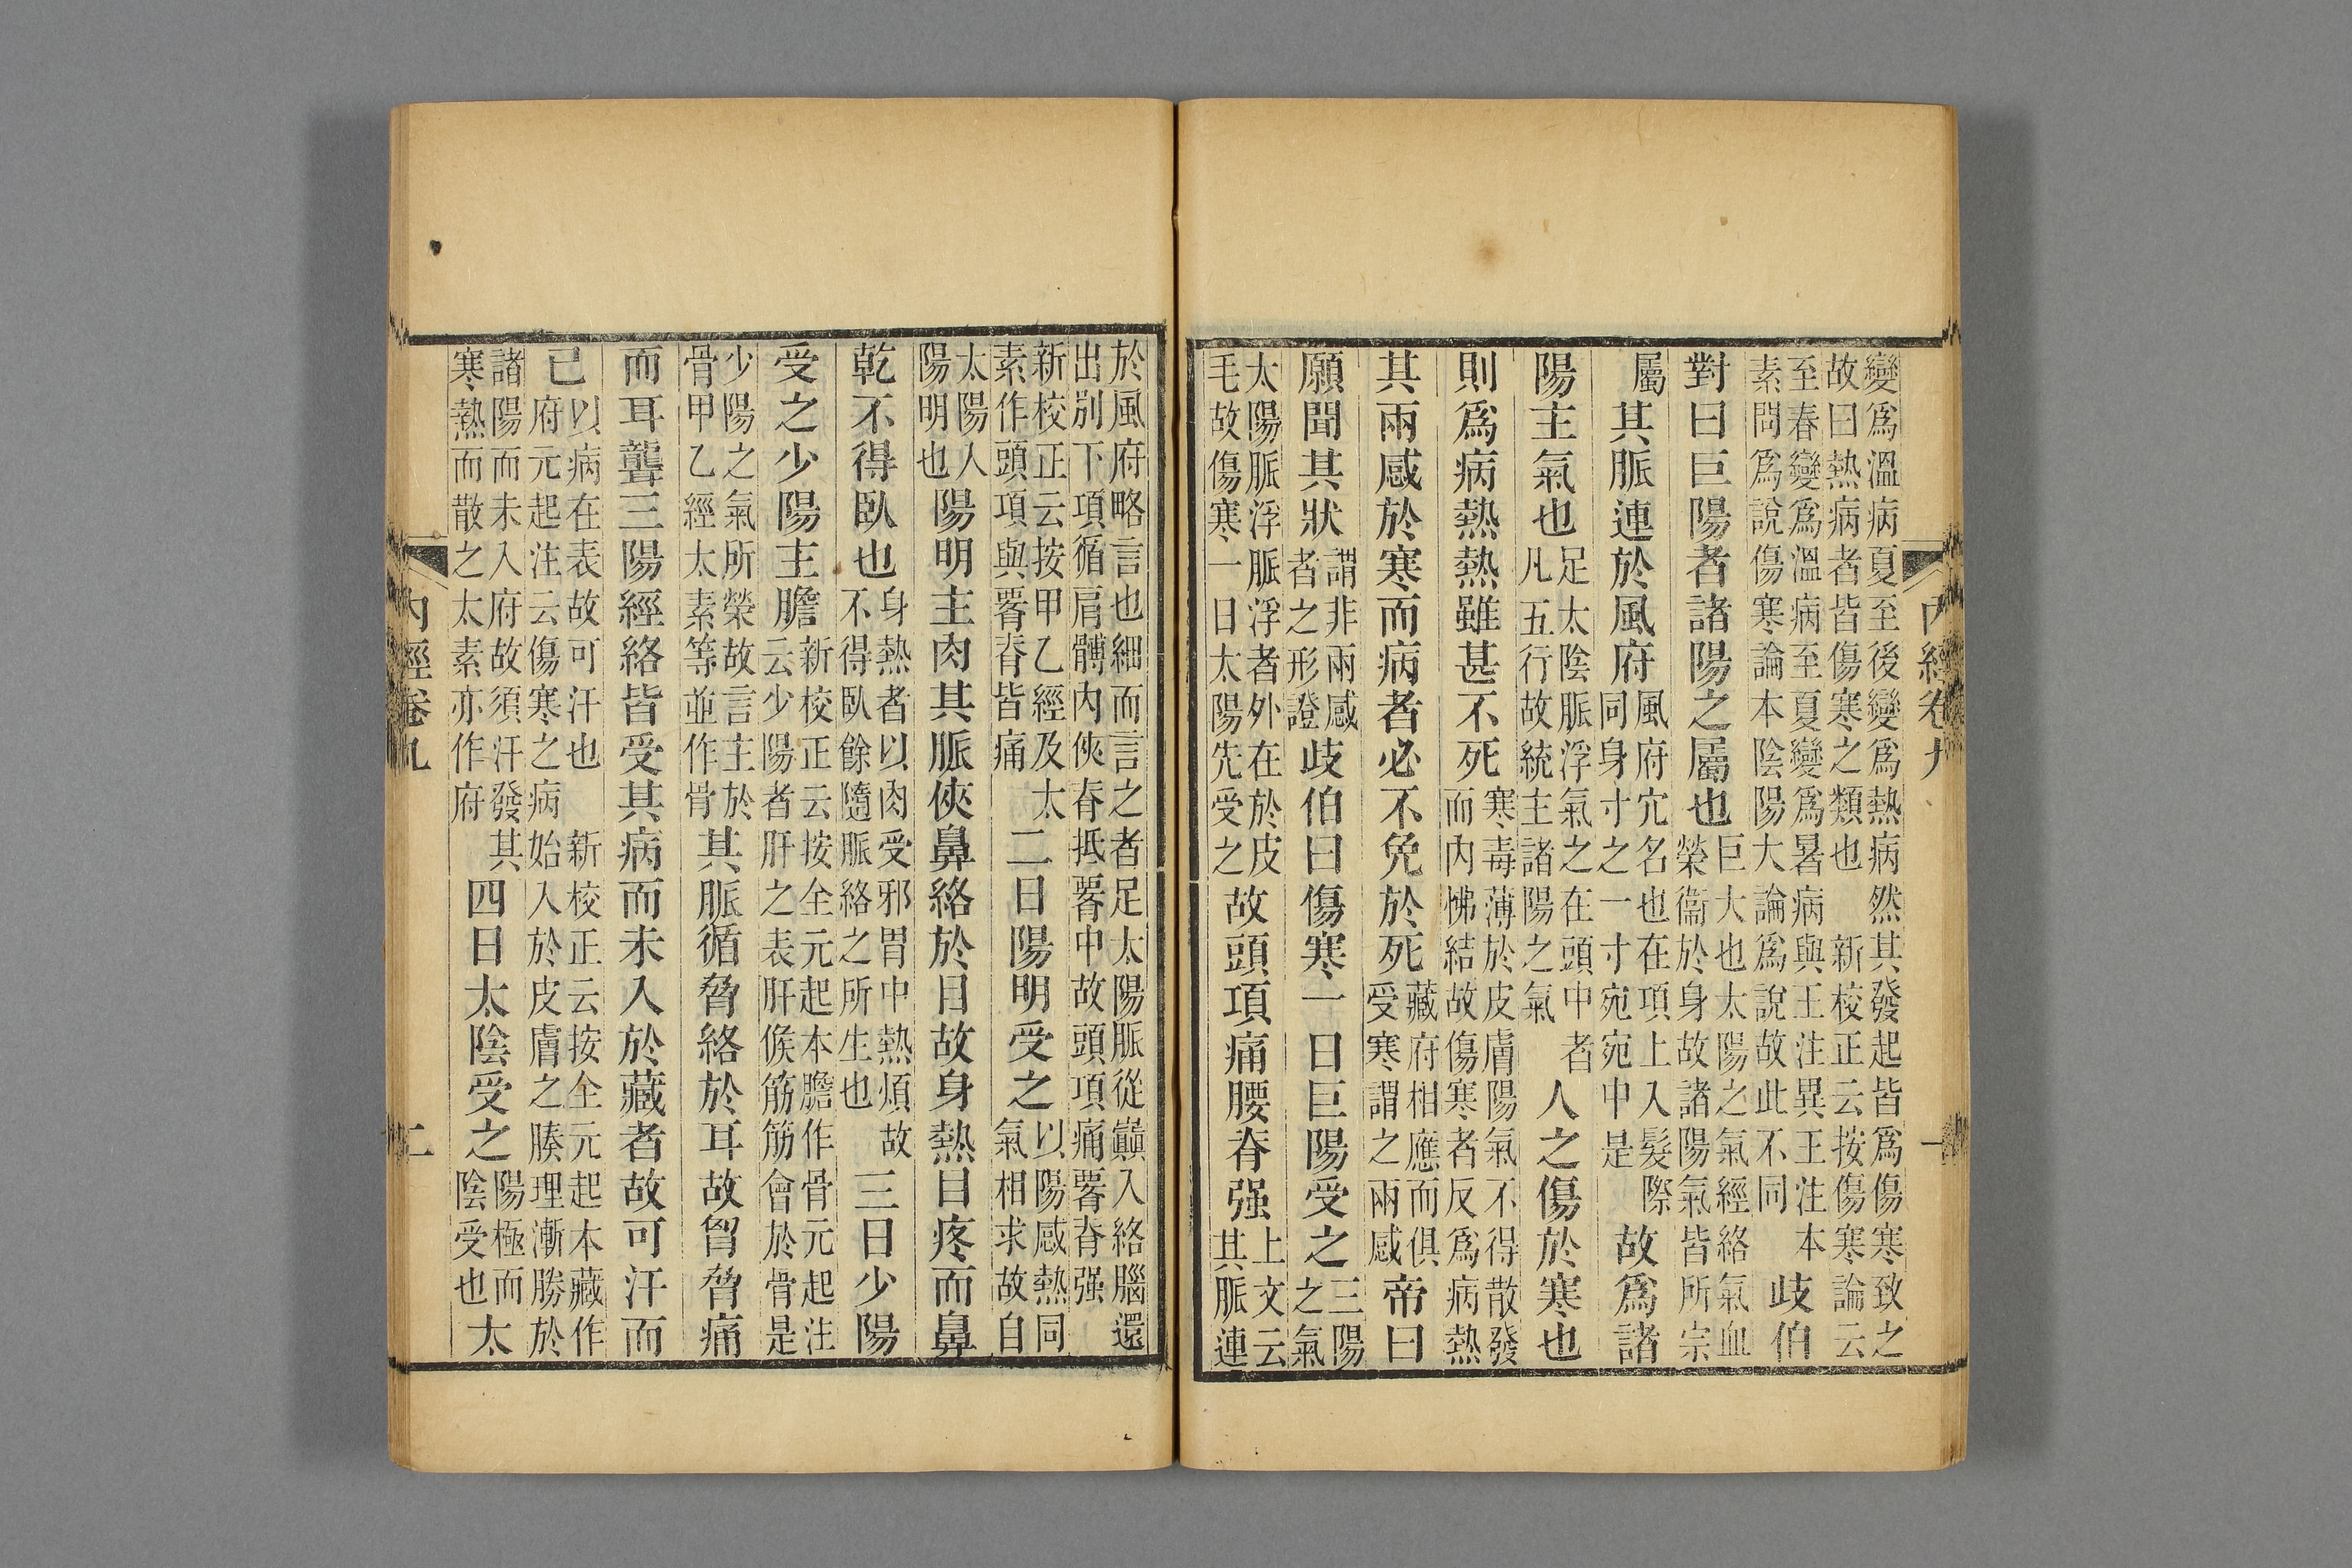 內經卷九 一
變爲溫病夏至後變爲熱病然其發起皆爲傷寒致之
故曰熱病者皆傷寒之類也 新校正云按傷寒論云
至春變爲溫病至夏變爲暑病與王注異王注本
素問爲說傷寒論本陰陽大論爲說故此不同 歧伯
對曰巨陽者諸陽之屬也 巨大也太陽之氣經絡氣血榮衞於身故諸陽氣皆所宗
屬 其脈連於風府 風府穴名也在項上入髮際同身寸之一寸宛宛中是 故爲諸
陽主氣也 足太陰脈浮氣之在頭中者凡五行故統主諸陽之氣 人之傷於寒也
則爲病熱熱雖甚不死 寒毒薄於皮膚陽氣不得散發而內怫結故傷寒者反爲病熱
其兩感於寒而病者必不免於死 藏府相應而俱受寒謂之兩感 帝曰
願聞其狀 謂非兩感者之形證 歧伯曰傷寒一日巨陽受之 三陽之氣
太陽脈浮脈浮者外在於皮毛故傷寒一日太陽先受之 故頭項痛腰脊强 上文云其脈連
於風府略言也細而言之者足太陽脈從巔入絡腦還
出別下項循肩髆內俠脊抵腰中故頭項痛腰脊强
新校正云按甲乙經及太素作頭項與腰脊皆痛 二日陽明受之 以陽感熱同氣相求故自
太陽人陽明也 陽明主肉其脈俠鼻絡於目故身熱目疼而鼻
乾不得臥也 身熱者以肉受邪胃中熱煩故不得臥餘隨脈絡之所生也 三日少陽
受之少陽主膽 新校正云按全元起本膽作骨元起注云少陽者肝之表肝候筋筋會於骨是
少陽之氣所榮故言主於骨甲乙經太素等並作骨 其脈循脅絡於耳故胷脅痛
而耳聾三陽經絡皆受其病而未入於藏者故可汗而
已 以病在表故可汗也 新校正云按全元起本藏作府元起注云傷寒之病始入於皮膚之腠理漸勝於
諸陽而未入府故須汗發其寒熱而散之太素亦作府 四日太陰受之 陽極而陰受也 太
內經卷九 二